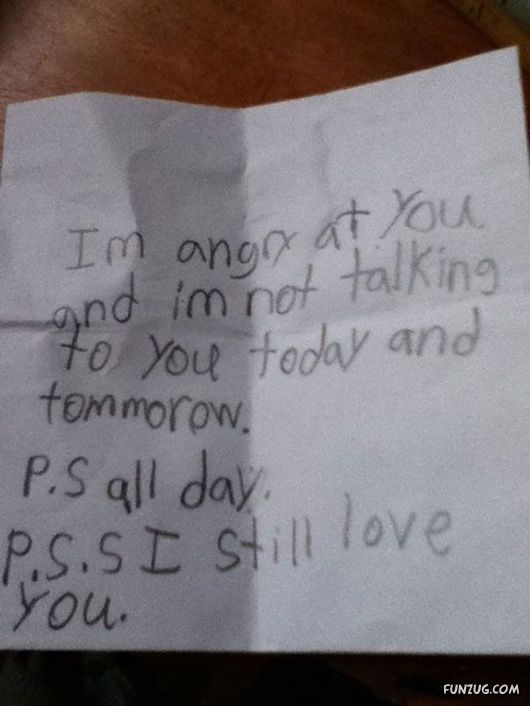 Im angry at you
and im not talking
to you today and
tommorow.
P.S all day.
P.S.S I still love
you.
FUNZUG.COM